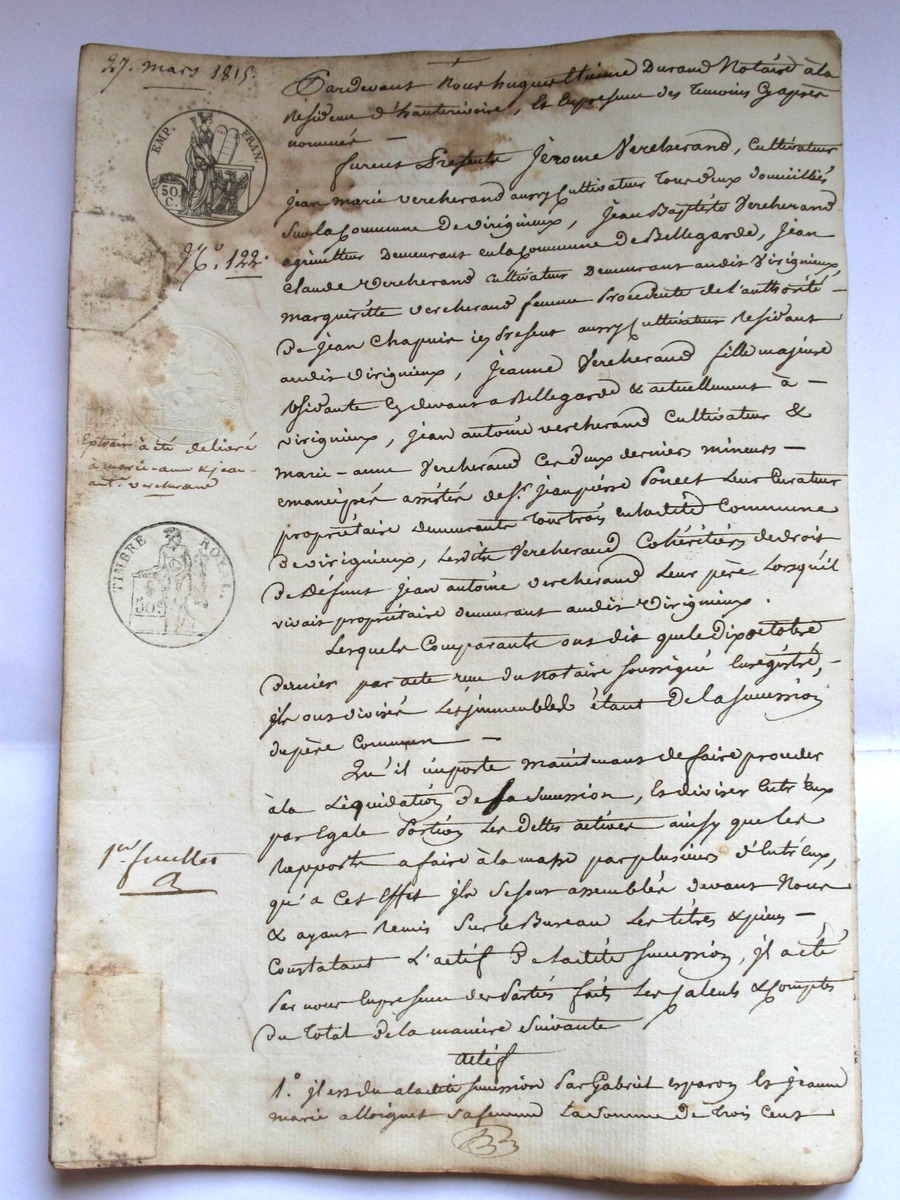 27. mars 1815.
EMP. FRAN.
50 C.
N.º 122.
Extrait à été delivré
à marie-anne & jean-
ant.e vercherand
TIMBRE ROYAL.
50.c
1er feuillet
Pardevant Nous hugues Etienne Durand Notaire à la
Residence d'hauterivoire, & En presence des temoins Cy apres
nommés —
furent Presents Jèrome Vercherand, Cultivateur
jean marie vercherand aussy Cultivateur tous deux domiciliés
Sur la Commune de Virigneux, Jean Baptiste Vercherand
agriculteur Demeurant en la Commune de Bellegarde, Jean
Claude Vercherand Cultivateur Demeurant audit Virigneux,
margueritte vercherand femme Procedente de l'authorité
de Jean Chapuis icy Present aussy Cultivateur Residant
audit virigneux, Jeanne Vercherand fille majeure
Residante Cy devant a Bellegarde & actuellement à —
virigneux, jean antoine vercherand Cultivateur &
marie-anne Vercherand Ces deux derniers mineurs —
emancipés assistés de S.r Jean pierre Poncet Leur Curateur
propriétaire demeurants tous trois en la dite Commune
de virigneux, Lesdits Vercherand Cohéritiers de droit
de Défunt jean antoine vercherand Leur père Lorsqu'il
vivait propriétaire demeurant audit Virigneux.
Lesquels Comparants ont dit que le Dix octobre
dernier par acte reçu du Notaire soussigné Enregistré, —
jls ont divisés Les jmmeubles étant de la succession
du père Commun —
Qu'il importe maintenant de faire proceder
à la Liquidation de sa succession, Et diviser Entr'Eux
par Egale Portion Les Dettes actives ainsy que les
Rapports a faire à la masse par plusieurs d'Entr'Eux,
qu'a Cet Effet jls se sont assemblés devant Nous
& ayant Remis Sur le Bureau Les titres & pieces —
Constatant L'actif de la dite succession, jl a été
Par nous En presence des Parties faits Les calculs & Comptes
du total de la maniere suivante
actif
1.º jl est du a la dite succession Par Gabriel esparon Et jeanne
marie alloignet sa femme La somme de trois Cent